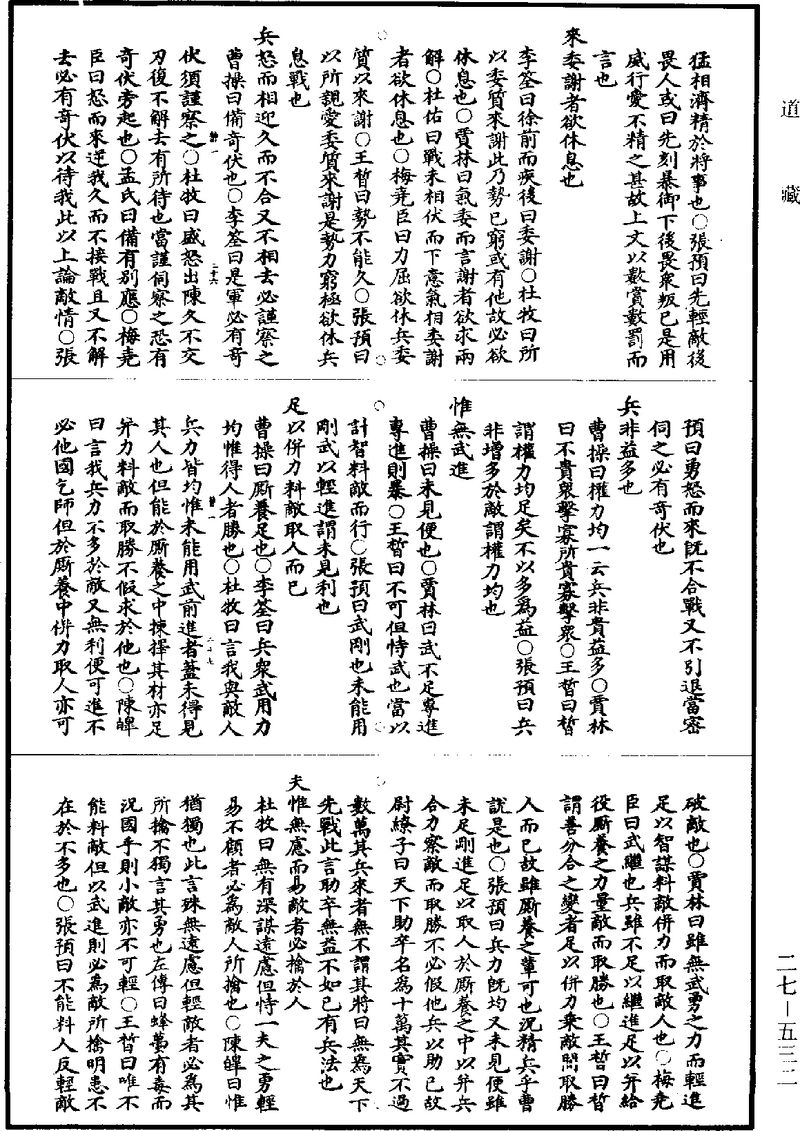 道藏
猛相濟精於將事也○張預曰先輕敵後
畏人或曰先刻暴御下後畏衆叛已是用
威行愛不精之甚故上文以數賞數罰而
言也
來委謝者欲休息也
李筌曰徐前而疾後曰委謝○杜牧曰所
以委質來謝此乃勢已窮或有他故必欲
休息也○賈林曰氣委而言謝者欲求兩
解○杜佑曰戰未相伏而下意氣相委謝
者欲休息也○梅堯臣曰力屈欲休兵委
質以來謝○王晳曰勢不能久○張預曰
以所親愛委質來謝是勢力窮極欲休兵
息戰也
兵怒而相迎久而不合又不相去必謹察之
曹操曰備奇伏也○李筌曰是軍必有奇
伏須謹察之○杜牧曰盛怒出陳久不交
刃復不解去有所待也當謹伺察之恐有
奇伏旁起也○孟氏曰備有別應○梅堯
臣曰怒而來逆我久而不接戰且又不解
去必有奇伏以待我此以上論敵情○張
預曰勇怒而來旣不合戰又不引退當密
伺之必有奇伏也
兵非益多也
曹操曰權力均一云兵非貴益多○賈林
曰不貴衆擊寡所貴寡擊衆○王晳曰晳
謂權力均足矣不以多爲益○張預曰兵
非增多於敵謂權力均也
惟無武進
曹操曰未見便也○賈林曰武不足專進
專進則暴○王晳曰不可但恃武也當以
計智料敵而行○張預曰武剛也未能用
剛武以輕進謂未見利也
足以併力料敵取人而已
曹操曰厮養足也○李筌曰兵衆武用力
均惟得人者勝也○杜牧曰言我與敵人
兵力皆均惟未能用武前進者蓋未得見
其人也但能於厮養之中揀擇其材亦足
并力料敵而取勝不假求於他也○陳皥
曰言我兵力不多於敵又無利便可進不
必他國乞師但於厮養中併力取人亦可
破敵也○賈林曰雖無武勇之力而輕進
足以智謀料敵併力而取敵人也○梅堯
臣曰武繼也兵雖不足以繼進足以并給
役厮養之力量敵而取勝也○王晳曰晳
謂善分合之變者足以併力乘敵間取勝
人而已故雖厮養之輩可也況精兵乎曹
說是也○張預曰兵力旣均又未見便雖
未足剛進足以取人於厮養之中以并兵
合力察敵而取勝不必假他兵以助已故
尉繚子曰天下助卒名爲十萬其實不過
數萬其兵來者無不謂其將曰無爲天下
先戰此言助卒無益不如已有兵法也
夫惟無慮而易敵者必擒於人
杜牧曰無有深謀遠慮但恃一夫之勇輕
易不顧者必爲敵人所擒也○陳皥曰惟
猶獨也此言殊無遠慮但輕敵者必爲其
所擒不獨言其勇也左傳曰蜂蠆有毒而
況國乎則小敵亦不可輕○王晳曰唯不
能料敵但以武進則必爲敵所擒明患不
在於不多也○張預曰不能料人反輕敵
二七－五三二